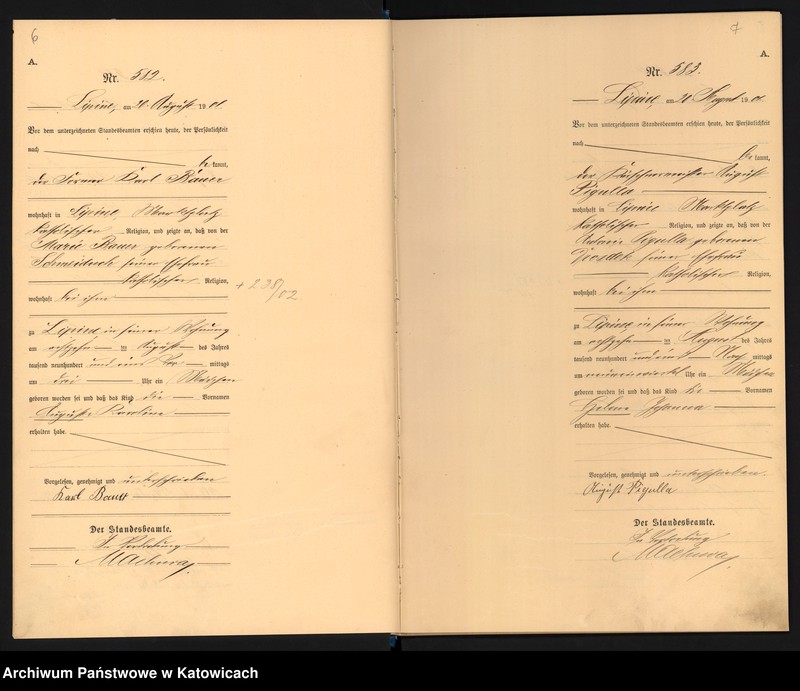 6
A.
Nr. 582.
Lipine, am 20. August 1901.
Vor dem unterzeichneten Standesbeamten erschien heute, der Persönlichkeit
nach
be kannt,
der Former Karl Bauer
wohnhaft in Lipine, Marktplatz
katholischer Religion, und zeigte an, daß von der
Marie Bauer geborenen
seiner Ehefrau
katholischer Religion,
wohnhaft bei ihm
zu Lipine in seiner Wohnung
am achtzehn ten August des Jahres
tausend neunhundert und eins Vor mittags
um drei Uhr ein Mädchen
geboren worden sei und daß das Kind die Vornamen
Auguste Karoline
erhalten habe.
Vorgelesen, genehmigt und unterschrieben
Karl Bauer
Der Standesbeamte.
In Vertretung
+ 238/02
7
A.
Nr. 583.
Lipine, am 20. August 1901.
Vor dem unterzeichneten Standesbeamten erschien heute, der Persönlichkeit
nach
be kannt,
der August
Pigulla
wohnhaft in Lipine Marktplatz
katholischer Religion, und zeigte an, daß von der
Pigulla geborenen
seiner Ehefrau
katholischer Religion,
wohnhaft bei ihm
zu Lipine in seiner Wohnung
am achtzehn ten August des Jahres
tausend neunhundert und eins Nach mittags
um Uhr ein Mädchen
geboren worden sei und daß das Kind die Vornamen
Helene Johanna
erhalten habe.
Vorgelesen, genehmigt und unterschrieben
August Pigulla
Der Standesbeamte.
In Vertretung
Archiwum Państwowe w Katowicach